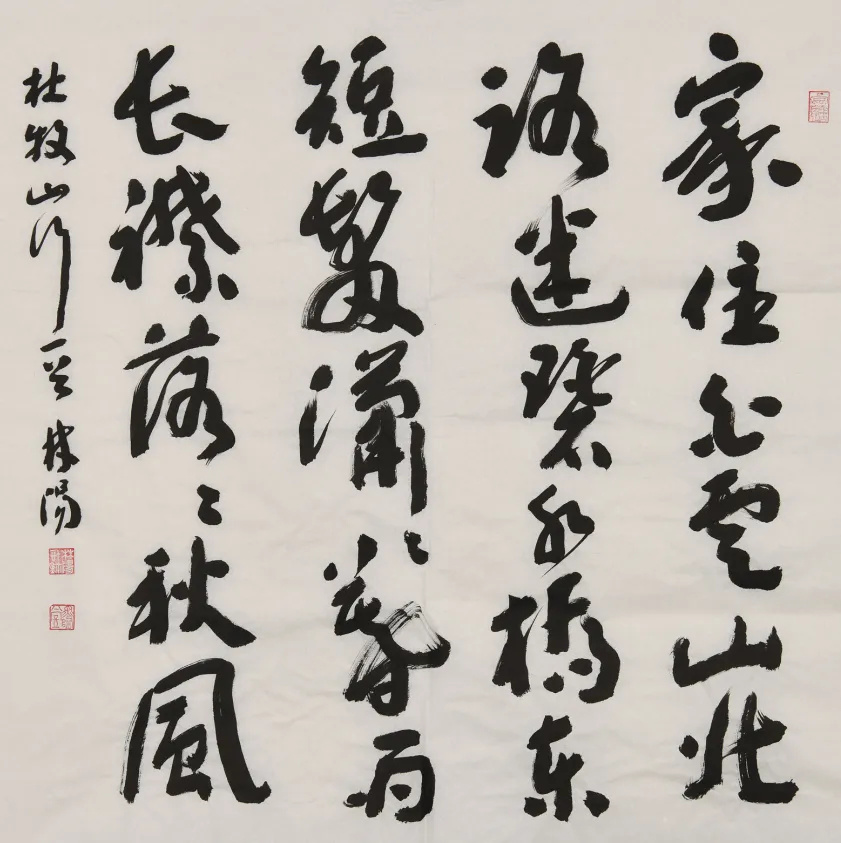 家住白雲山北
路迷碧水橋東
短髮瀟〻暮雨
长襟落〻秋風
杜牧山行一首